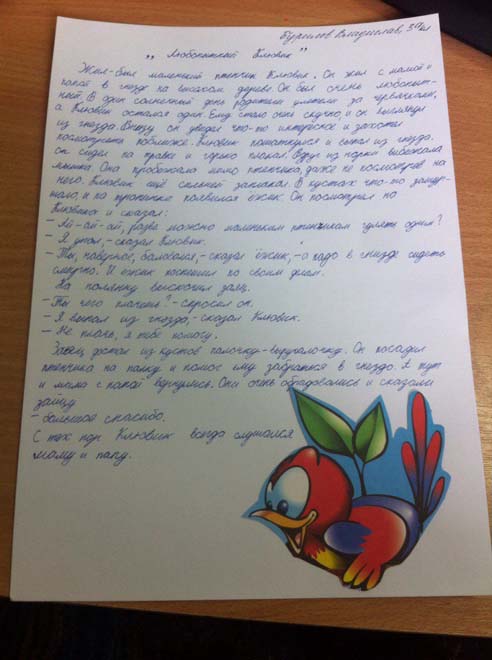 Бурилов Владислав, 3 "А" кл
„Любопытный Клювик"
Жил-был маленький птенчик Клювик. Он жил с мамой и
папой в гнезде на высоком дереве. Он был очень любопыт-
ный. В один солнечный день родители улетели за червяками,
а Клювик остался один. Ему стало очень скучно, и он выглянул
из гнезда. Внизу он увидел что-то интересное и захотел
посмотреть поближе. Клювик потянулся и выпал из гнезда.
Он сидел на травке и горько плакал. Вдруг из норки выбежала
мышка. Она пробежала мимо птенчика, даже не посмотрев на
него. Клювик ещё сильней заплакал. В кустах что-то зашур-
шало, и на тропинке появился ёжик. Он посмотрел на
Клювика и сказал:
- Ай-ай-ай, разве можно маленьким птенчикам гулять одним?
- Я упал, - сказал Клювик.
- Ты, наверное, баловался, - сказал ёжик, - а надо в гнезде сидеть
смирно. И ёжик поспешил по своим делам.
На полянку выскочил заяц.
- Ты чего плачешь? - спросил он.
- Я выпал из гнезда, - сказал Клювик.
- Не плачь, я тебе помогу.
Заяц достал из кустов палочку-выручалочку. Он посадил
птенчика на палку и помог ему забраться в гнездо. А тут
и мама с папой вернулись. Они очень обрадовались и сказали
зайцу
- большое спасибо.
С тех пор Клювик всегда слушался
маму и папу.